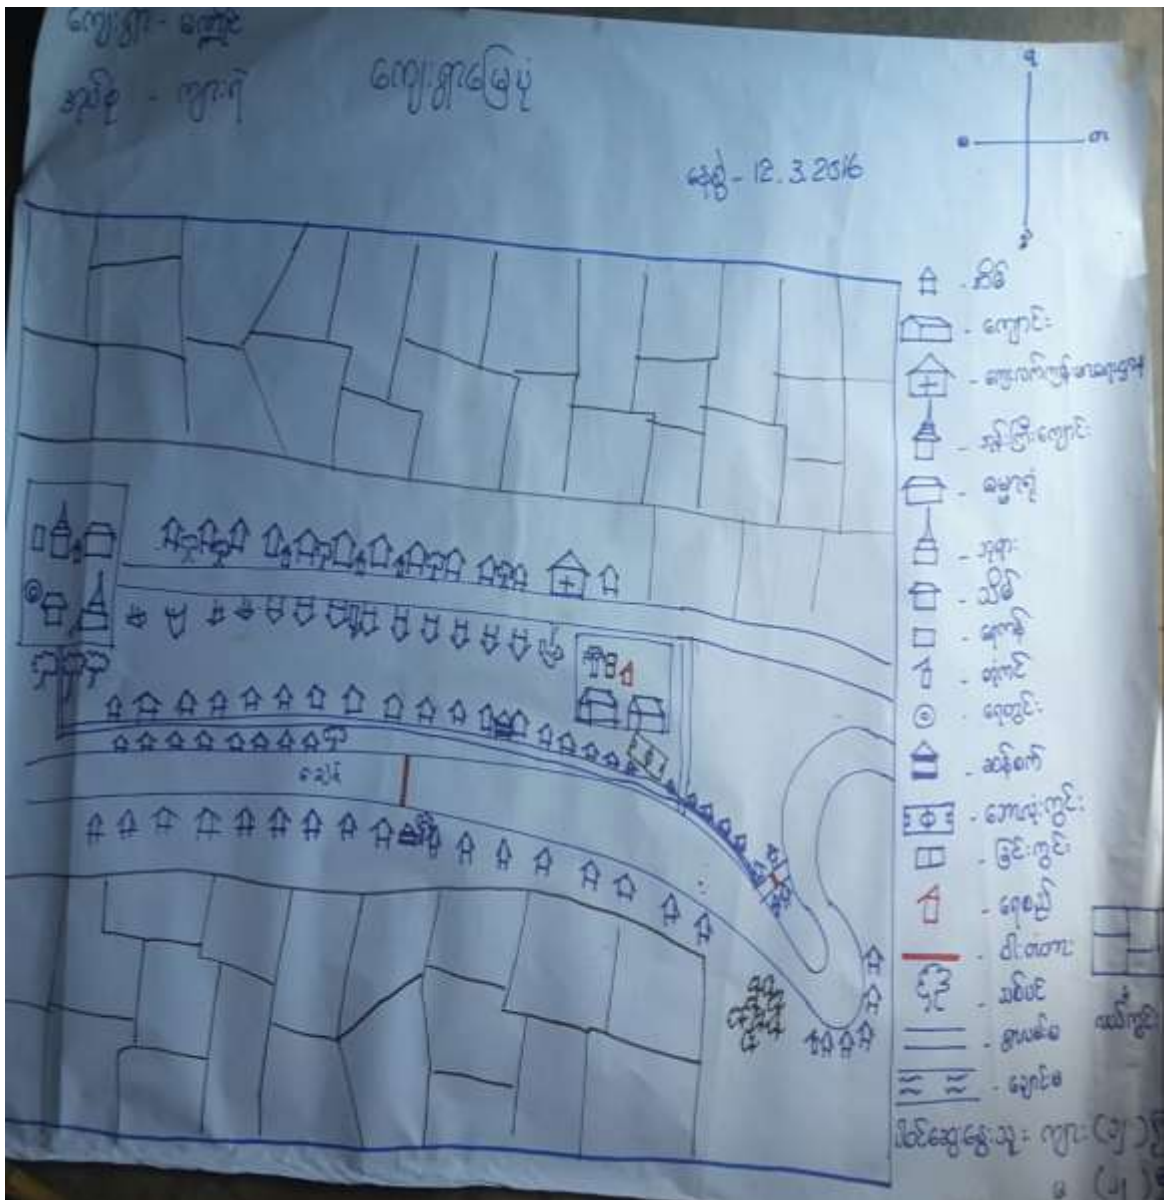 ကျေးရွာ -
အုပ်စု - ကျားရဲ
ကျေးရွာမြေပုံ
နေ့စွဲ - 12.3.2016
တ
- အိမ်
- ကျောင်း
- ကျေးလက်ကျန်းမာရေးဌာန
- ဘုန်းကြီးကျောင်း
- ဓမ္မာရုံ
- ဘုရား
- သိမ်
- ရေကန်
- တုံကင်
- ရေတွင်း
- ဆန်စက်
- ဘောလုံးကွင်း
- ခြင်းကွင်း
- ရေစည်
- ဝါးတံတား
- သစ်ပင်
- ရွာလမ်းမ
- ချောင်းမ
လယ်ကွင်း
ချောင်း
ပါဝင်ဆွေးနွေးသူ = ကျား
မ